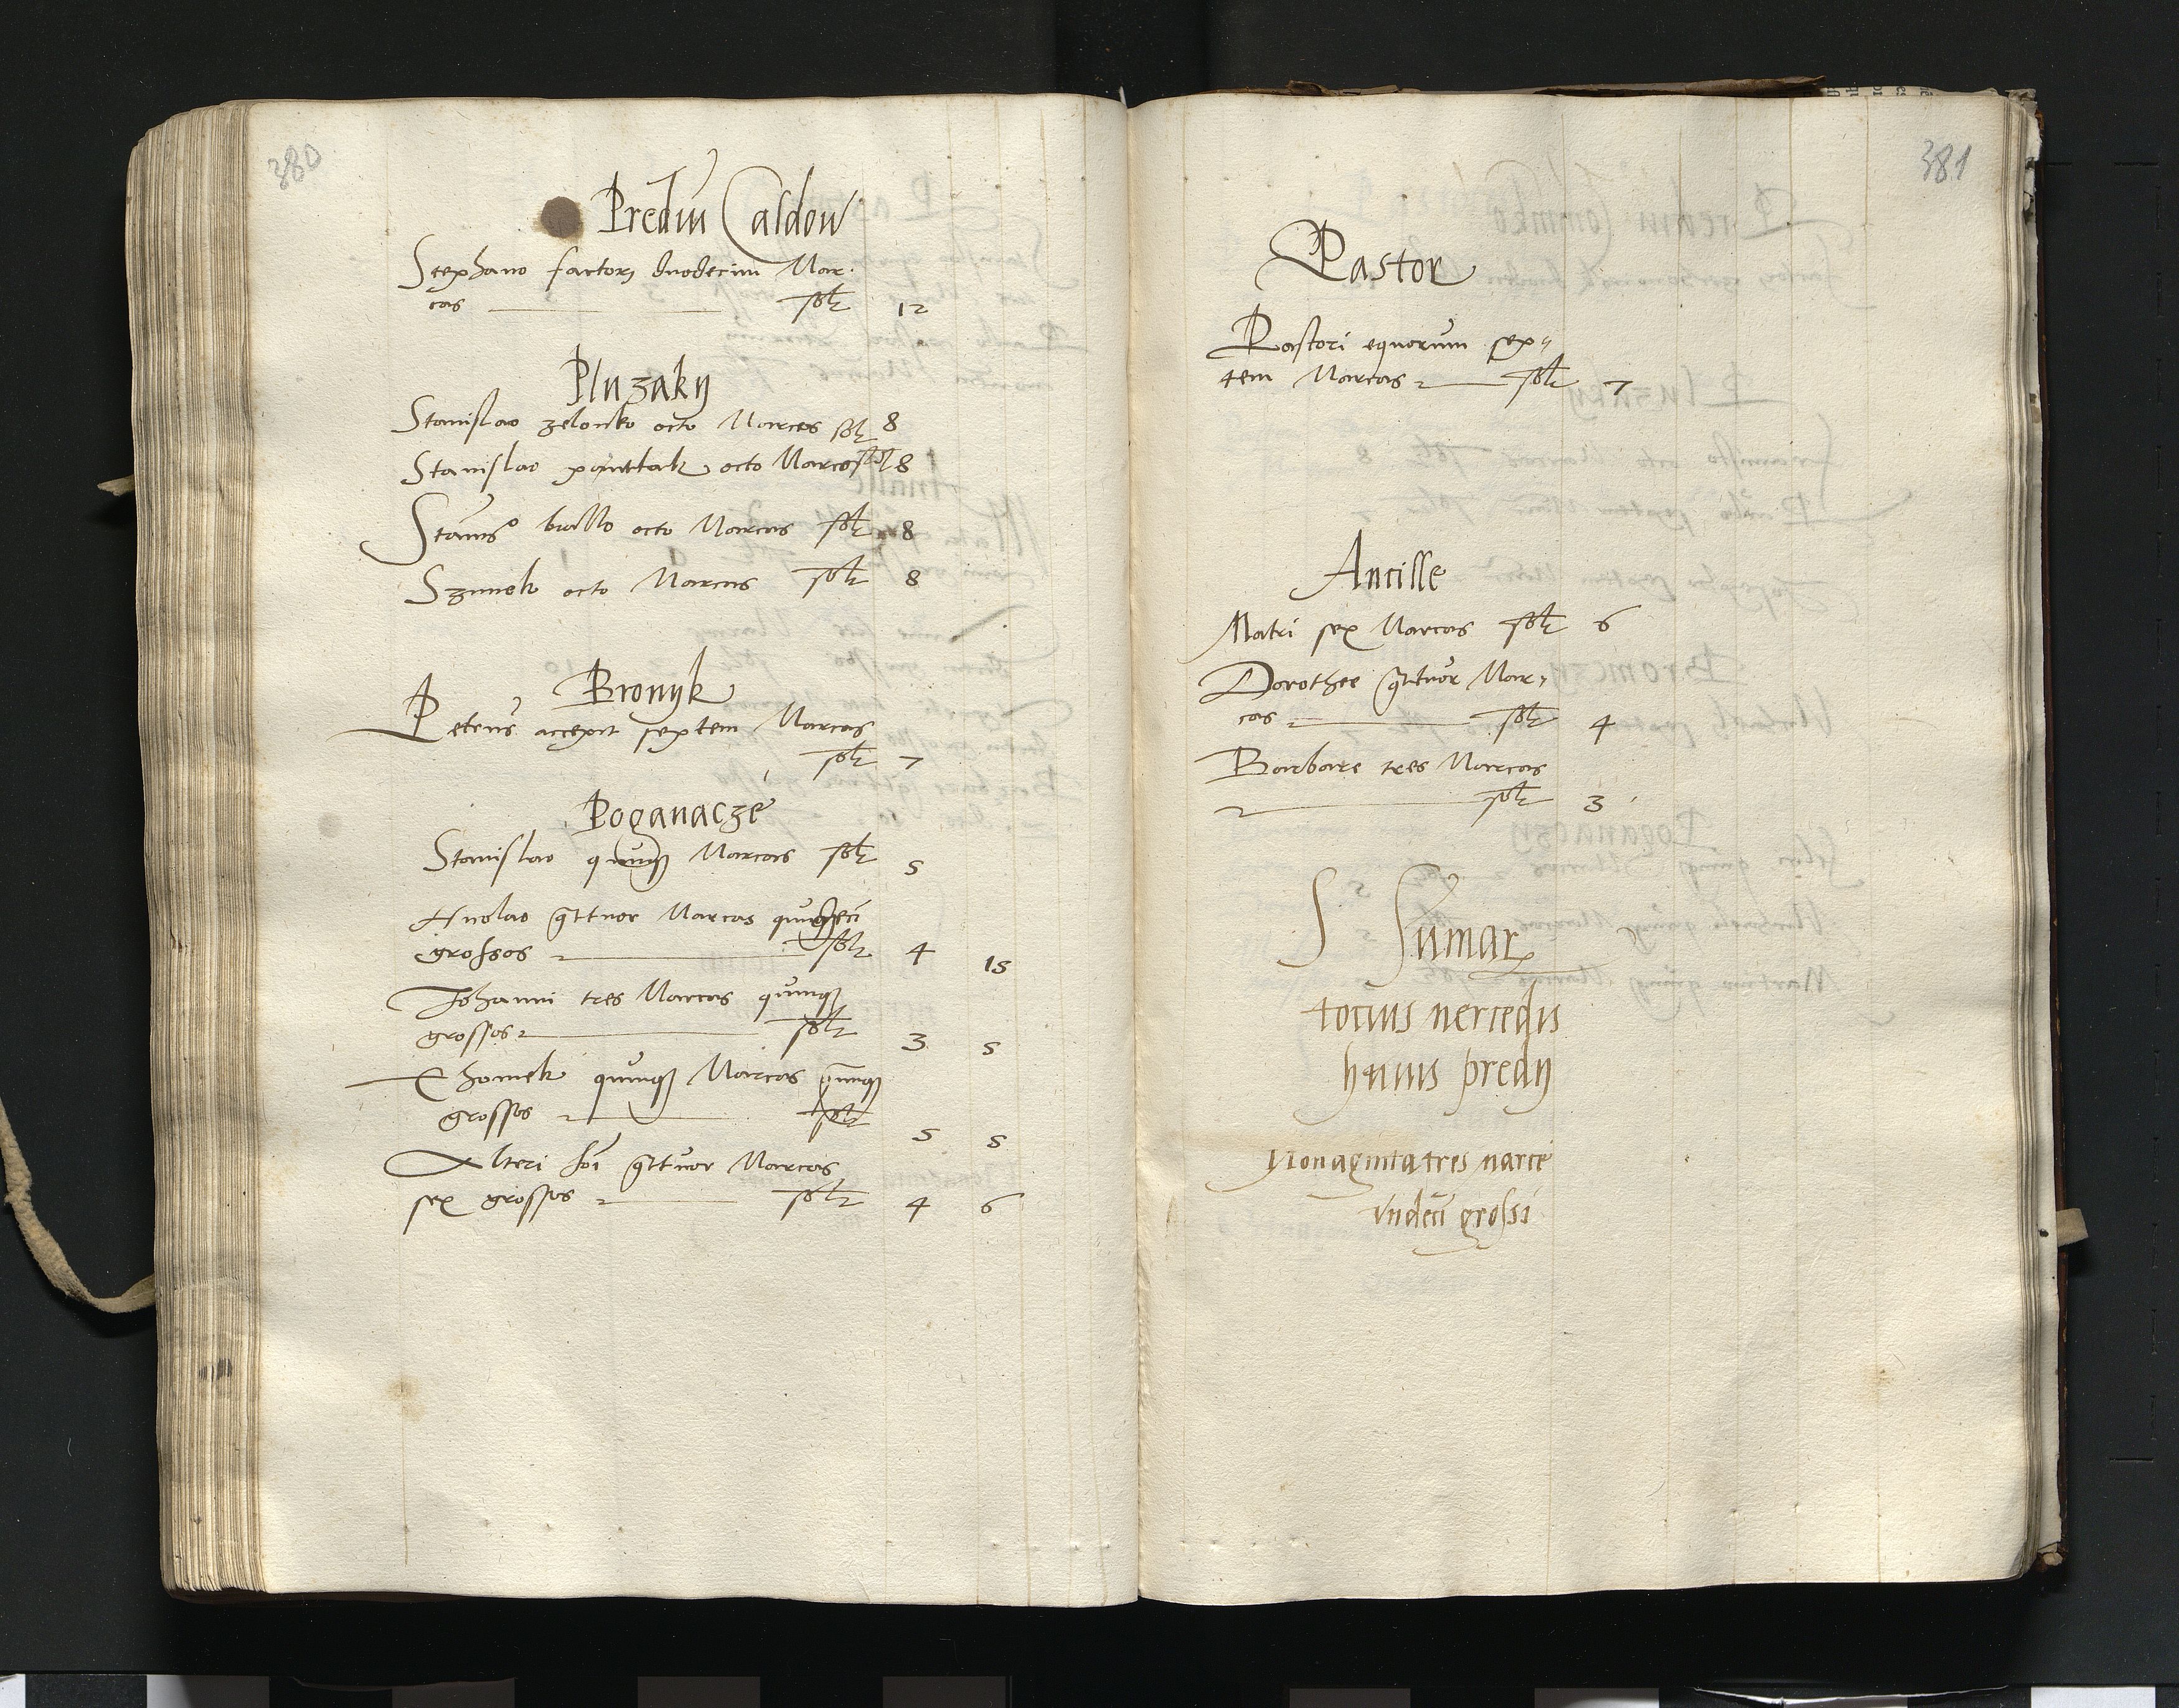 380
Prediu Caldow
Stephano factori duodecim Mar
cas solt 12
Pluzaky
Stanislao zelonko octo Marcas solt 8
Stanislao octo Marcas solt 8
Stanisº octo Marcas solt 8
Szimek octo Marcas solt 8
Bronyk
Petrus accepit septem Marcas
solt 7
Poganacze
Stanislao quinqȝ Marcas solt 5
qttuor Marcas quindeci
grossos solt 4 15
Johanni tres Marcas quinqȝ
grossos solt 3 5
Thomek quinqȝ Marcas quinqȝ
grossos solt 5 5
Alteri qttuor Marcas
sex grossos solt 4 6
381
Pastor
Pastori equorum sep„
tem Marcas solt 7
Ancille
Matri sex Marcas solt 6
Dorothee qttuor Mar„
cas solt 4
Barbare tres Marcas
solt 3
S Sumar
tocius mercedis
huius predij
Nonaginta tres marce
undeci grossi